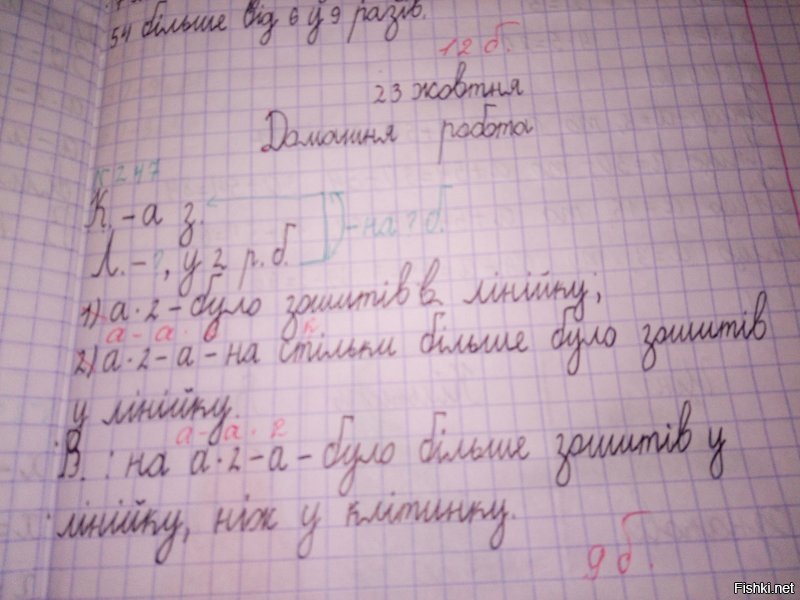 54 більше від 6 у 9 разів.
12 б.
23 жовтня
Домашня робота
№247
К. - а з.
Л. - ?, у 2 р. б. - на ? б.
1) а · 2 - було зошитів в лінійку;
а - а ·
к
2) а · 2 - а - на стільки більше було зошитів
у лінійку.
а - а · 2
В. : на а · 2 - а - було більше зошитів у
лінійку, ніж у клітинку.
9 б.
Fishki.net